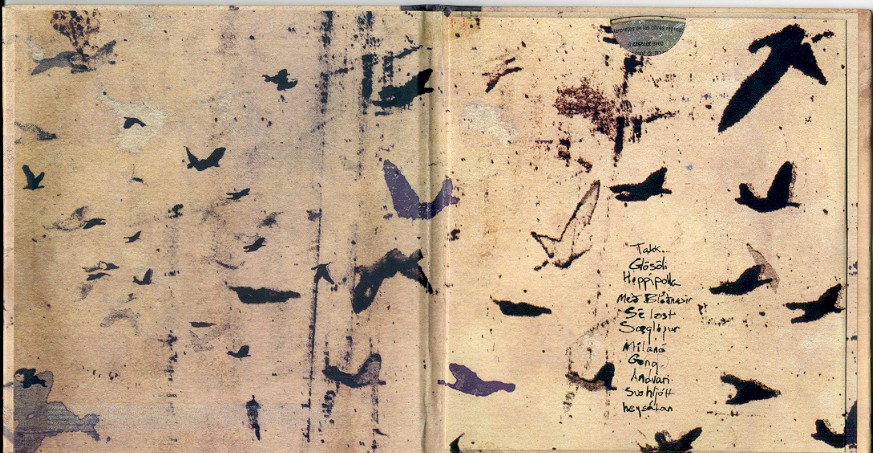 Takk...
Glósóli
Hoppípolla
Með Blóðnasir
Sé lest
Sæglópur
Mílanó
Gong
Andvari
Svo hljótt
heysátan